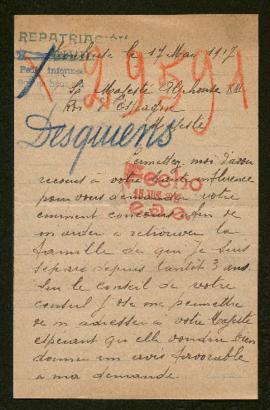 REPATRIACION
Toulouse le 17 Mai 1917
29591
Sa Majesté Alphonse XIII
Roi d'Espagne
Majesté
Desquiens
Permettez moi d'avoir
recours à votre haute influence
pour vous demander votre
éminent concours afin de
m'aider à retrouver la
famille de qui je suis
séparé depuis tantôt 3 ans.
Sur le conseil de votre
consul j'ose me permettre
de m'adresser à votre Majesté
espérant que elle voudra bien
donner un avis favorable
à ma demande.
Fecho
15 JUN